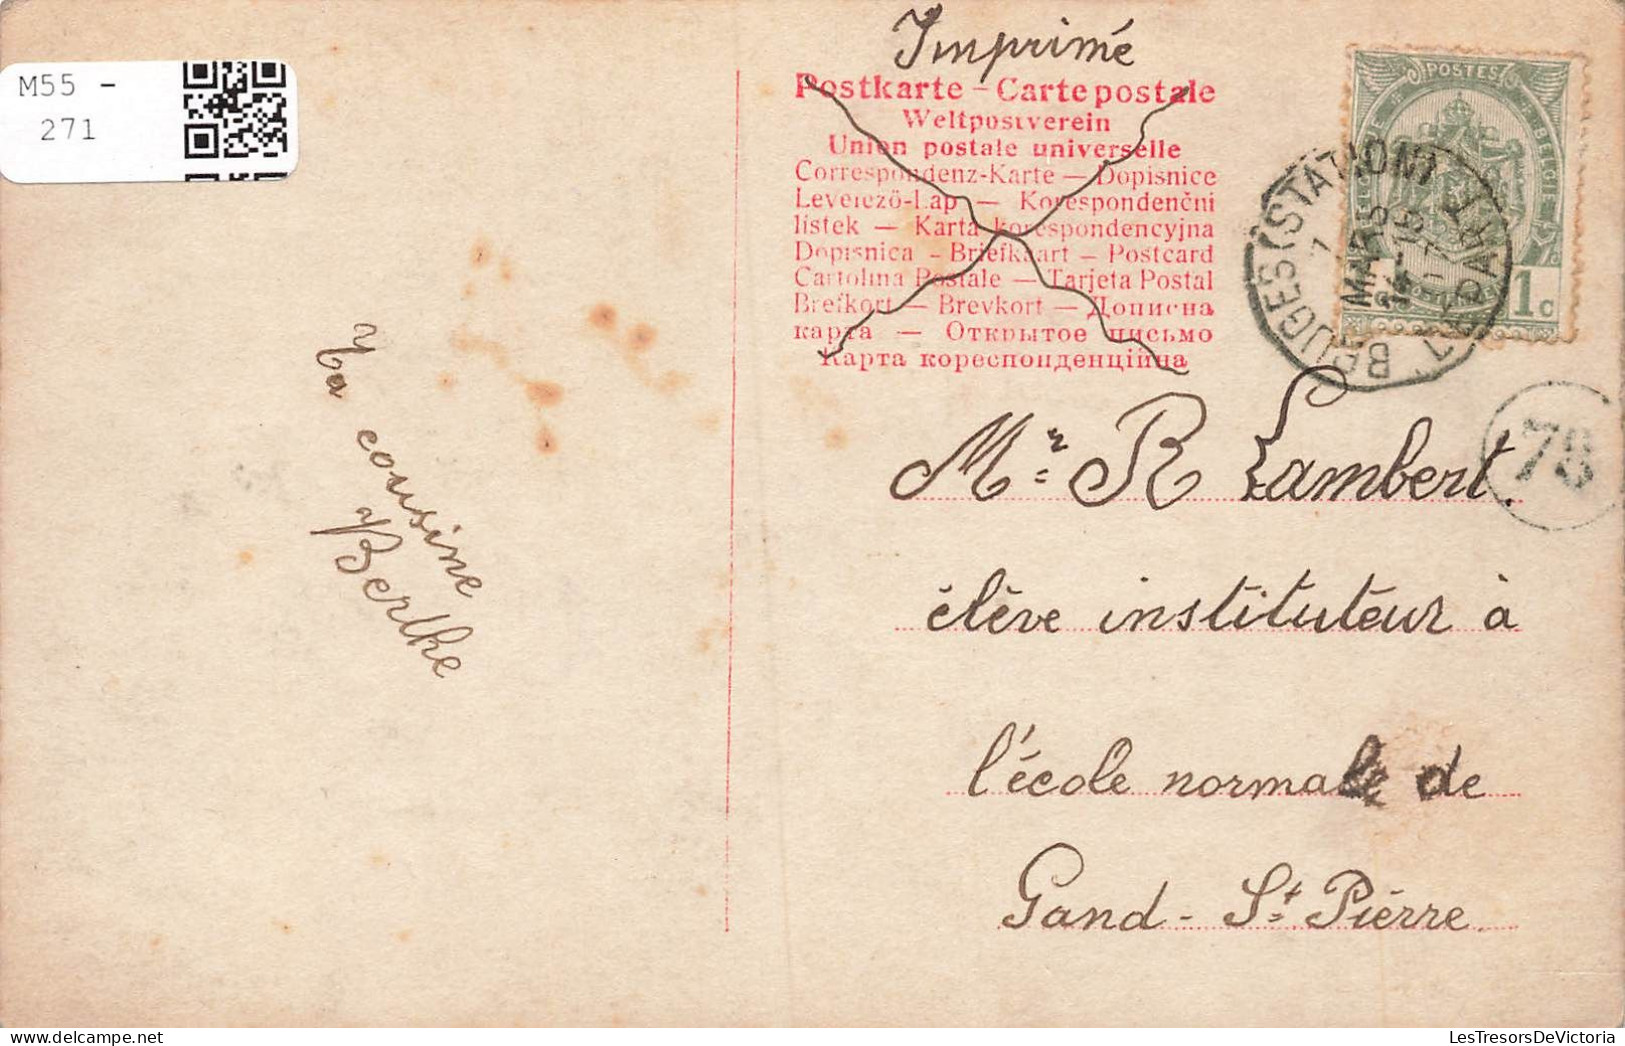 M55 -
271
Imprimé
Postkarte – Carte postale
Weltpostverein
Union postale universelle
Correspondenz-Karte – Dopisnice
Levelező-Lap – Korespondenční
lístek – Karta korespondencyjna
Dopisnica – Briefkaart – Postcard
Cartolina Postale – Tarjeta Postal
Brefkort – Brevkort – Дописна
карта – Открытое письмо
Карта кореспонденційна
POSTES
BELGIE
1c
BRUGES (STATION)
7
MARS
78
Ta cousine
Berthe
Mr. R Lambert.
élève instituteur à
l'école normale de
Gand - St. Pierre.
LesTresorsDeVictoria.com